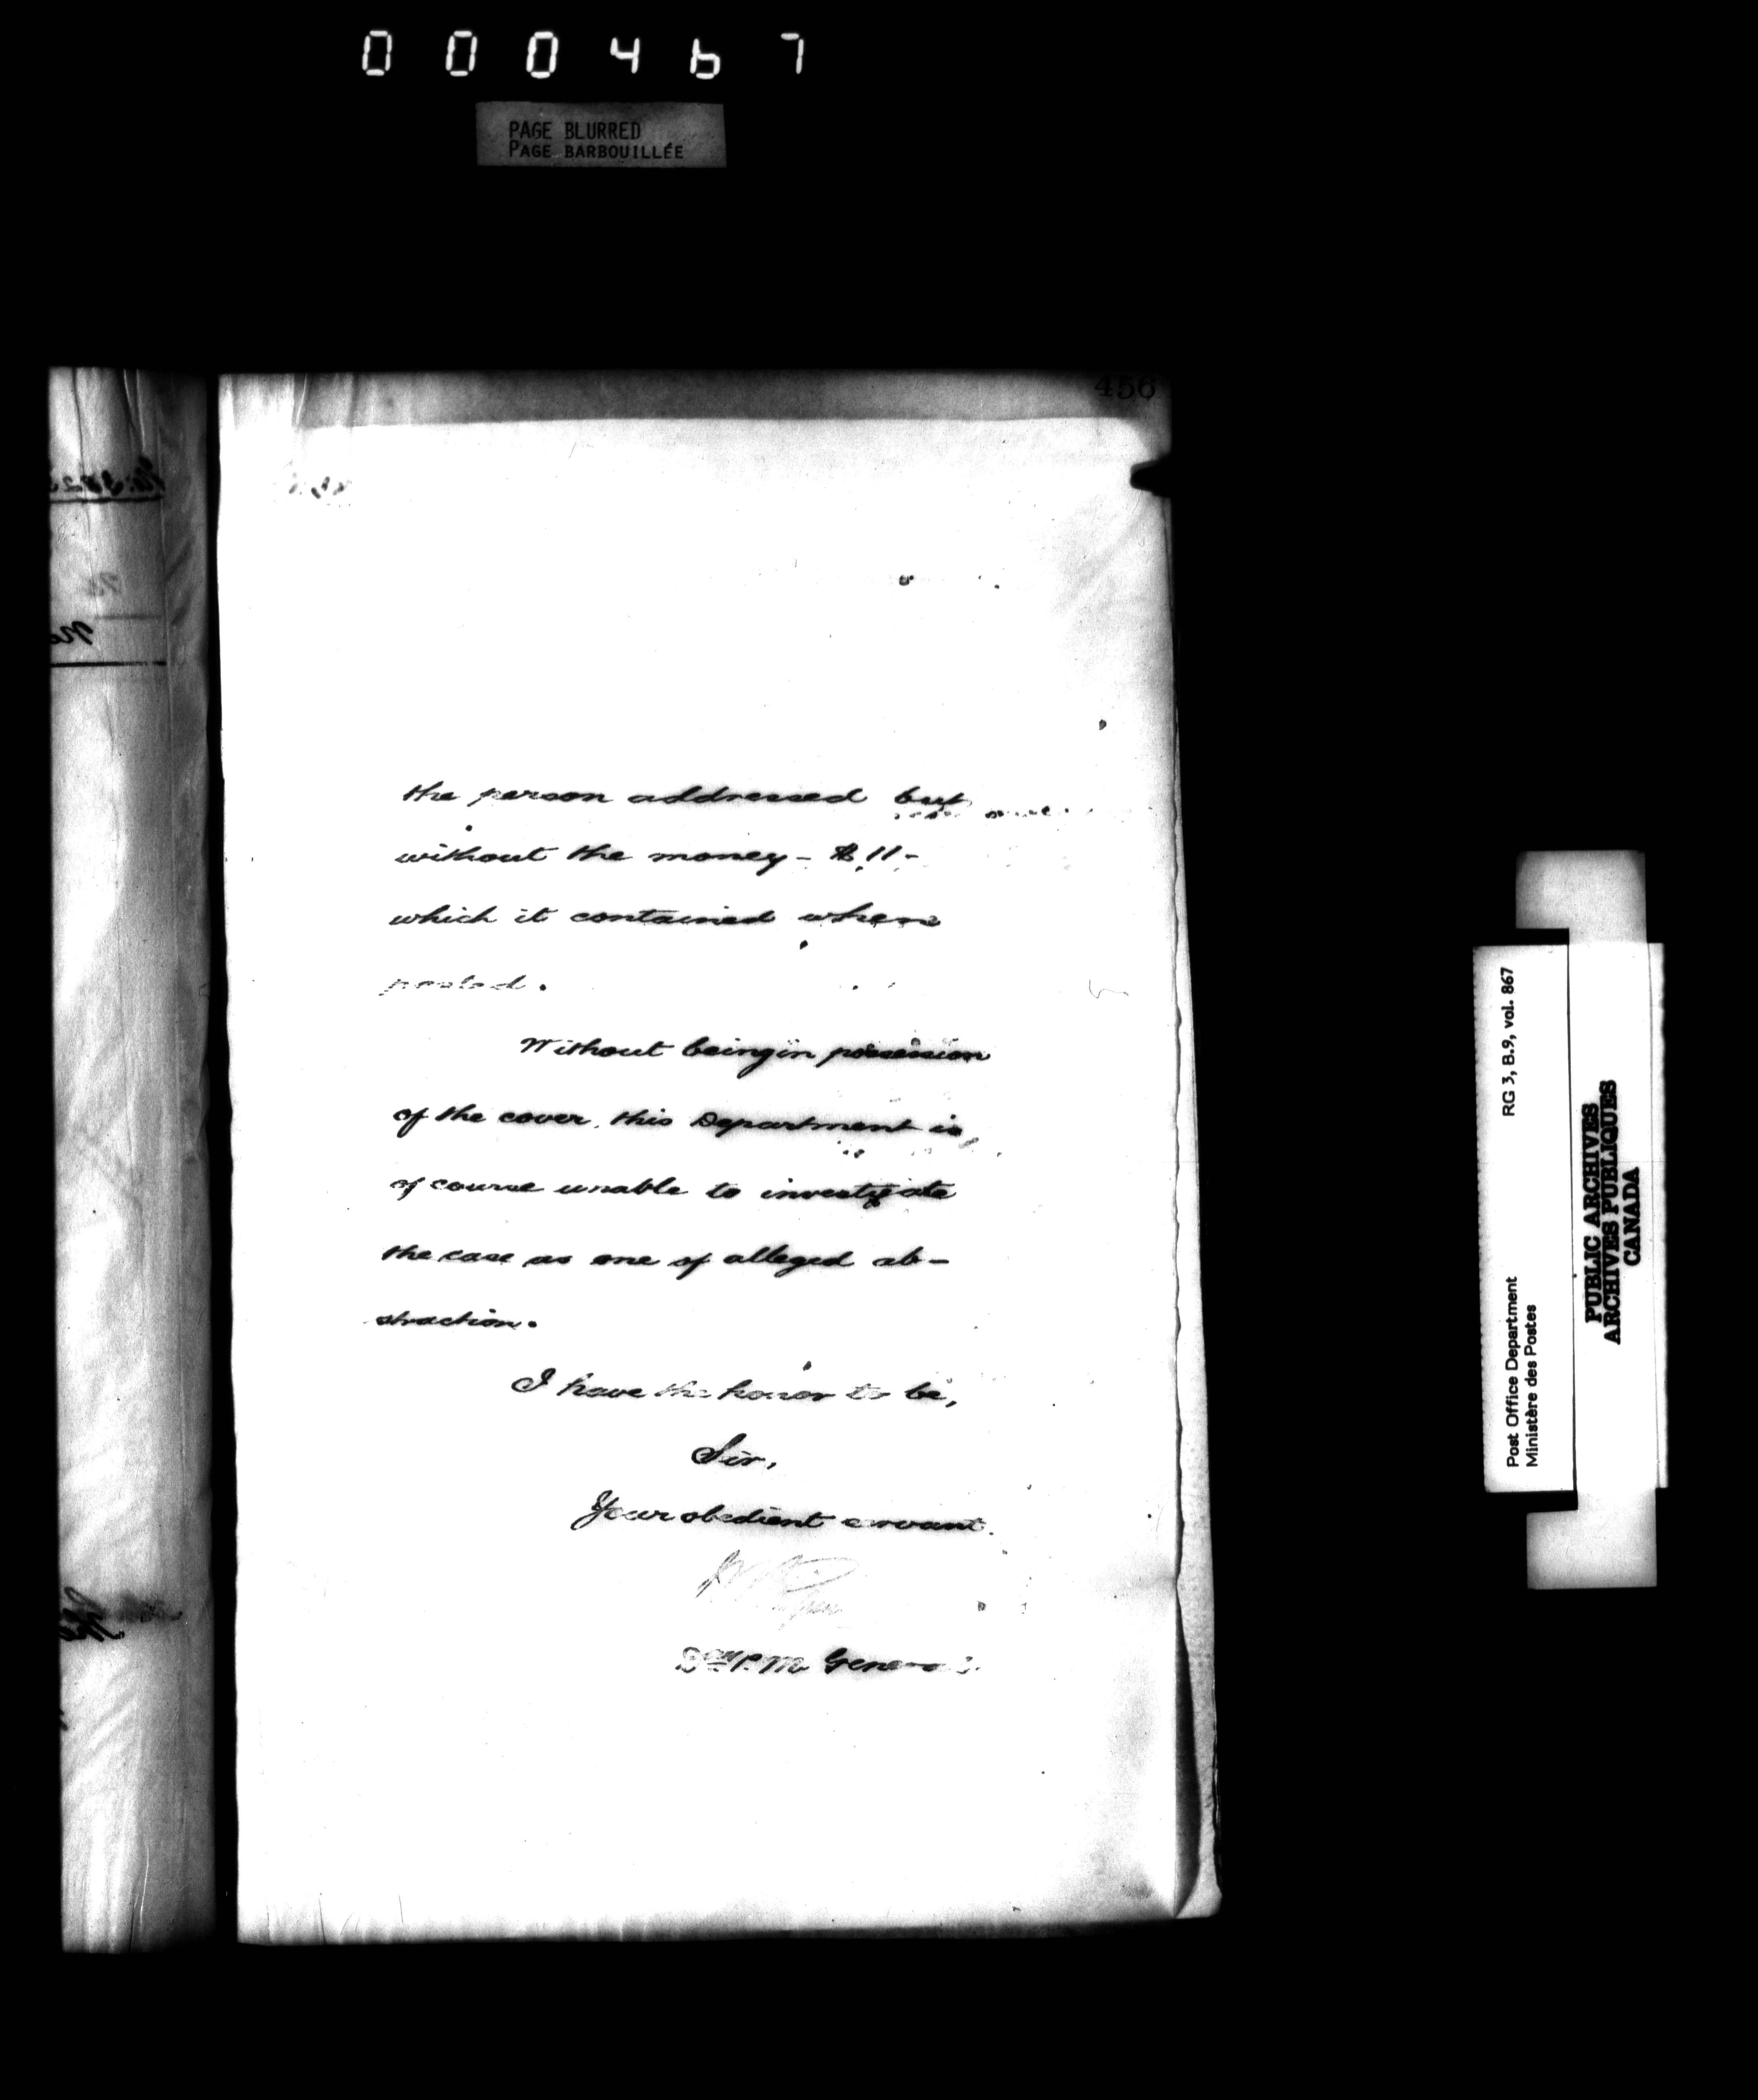 000467
PAGE BLURRED
PAGE BARBOUILLÉE
456
the person addressed but
without the money - $11 -
which it contained when
posted.
Without being in possession
of the cover, this Department is,
of course unable to investigate
the case as one of alleged ab-
straction.
I have the honor to be,
Sir,
Your obedient servant.
Dy P. M. General.
RG 3, B.9, vol. 867
Post Office Department
Ministère des Postes
PUBLIC ARCHIVES
ARCHIVES PUBLIQUES
CANADA